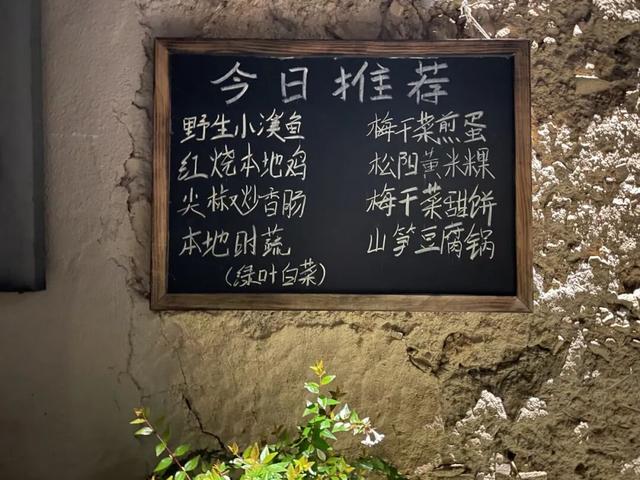 今日推荐
野生小溪鱼
红烧本地鸡
尖椒炒香肠
本地时蔬
(绿叶白菜)
梅干菜煎蛋
松阳黄米粿
梅干菜甜饼
山笋豆腐锅